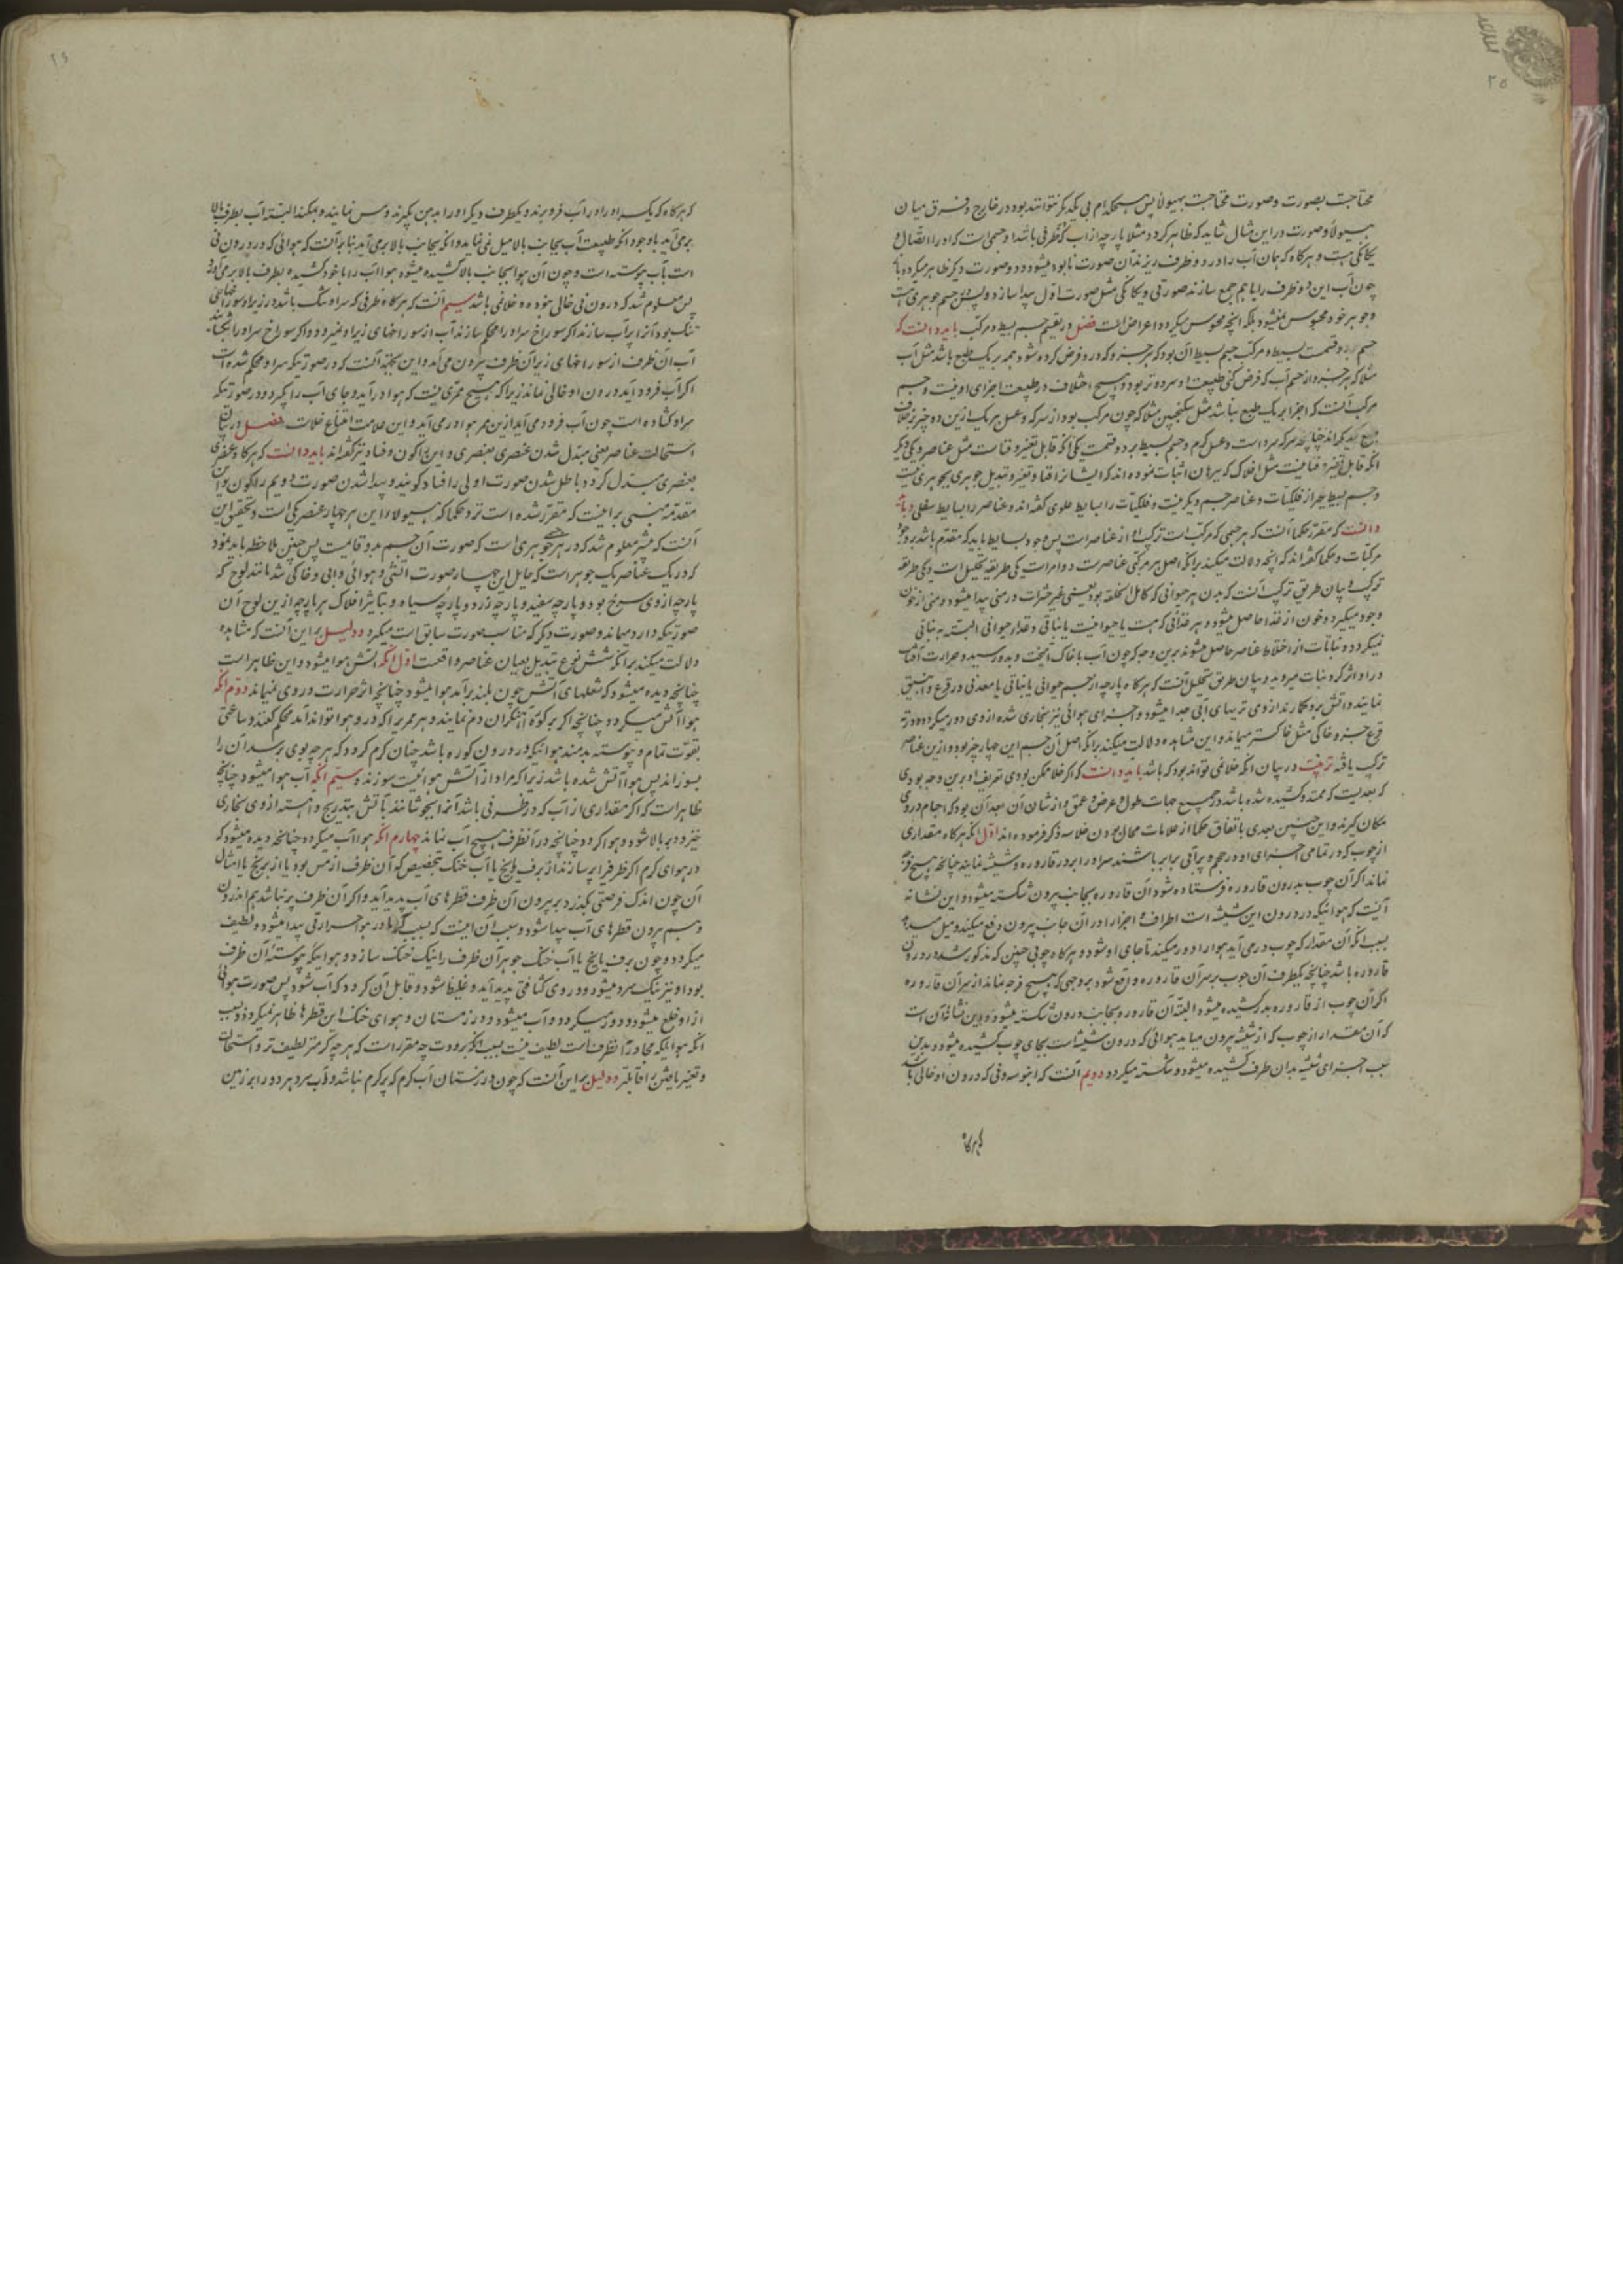 ۲۵
محتاجست بصورت و صورت محتاجست بهیولا پس هیچکدام بی یکدیگر نتوانند بود در خارج و فرق میان
هیولا و صورت در این مثال شاید که ظاهر گردد مثلا پارچه از آب که در ظرفی باشد او جسمی است که او را اتصال و
یکانکی هست و هرکاه که همان آب را در دو ظرف ریزند آن صورت نابود میشود و دو صورت دیگر ظاهر میکردد باز
چون آب این دو ظرف را با هم جمع سازند صورتی و یکانکی مثل صورت اول پیدا سازد و پس در جسم جوهری هست
و جوهر خود محسوس نمیشود بلکه آنچه محسوس میکردد اعراض است فصل در تقسیم جسم بسیط و مرکب باید دانست که
جسم بر دو قسمست بسیط و مرکب جسم بسیط آن بود که هر جزو که در و فرض کرده شود همه بر یک طبع باشد مثل آب
مثلا که هر جزو از جسم آب که فرض کنی طبیعت او سرد و تر بود و هیچ اختلاف در طبیعت اجزای او نیست و جسم
مرکب آنست که اجزا بر یک طبع نباشد مثل سکنجبین مثلا که چون مرکب بود از سرکه و عسل هر یک ازین دو چیز بر خلاف
طبع یکدیگرند چنانچه سرکه سرد است و عسل گرم و جسم بسیط بر دو قسمت یکی آنکه قابل تغیر و فناست مثل عناصر و یکی دیگر
آنکه قابل تغیر و فنا نیست مثل افلاک که
و جسم بسیط بغیر از فلکیات و عناصر جسم دیگر نیست و فلکیات را بسایط علوی گفته اند و عناصر را بسایط سفلی و باید
دانست که مقرر حکما آنست که هر جسمی که مرکبست ترکیب او از عناصر است پس وجود بسایط باید که مقدم باشد بر وجود
مرکبات و حکما گفته اند که آنچه دلالت میکند بر آنکه اصل هر مرکبی عناصرست دو امرست یکی طریقه تحلیل است و یکی طریقه
ترکیب و بیان طریق ترکیب آنست که بدن هر حیوانی که کامل الخلقه بود یعنی غیر حشرات در منی پیدا میشود و منی از خون
وجود میگیرد و خون از غذا حاصل میشود و هر غذائی که هست یا حیوانیست یا نباتی و غذاء حیوانی البته به نباتی
میکردد و نباتات از اختلاط عناصر حاصل میشوند برین وجه که چون آب با خاک آمیخت و بدو رسید و حرارت آفتاب
در او اثر کرد نبات میروید و بیان طریق تحلیل آنست که هرکاه پارچه از جسم حیوانی یا نباتی یا معدنی در قرع و انبیق
نمایند و آتش برو بکارند از وی تریهای آبی جدا میشود و اجزای هوائی نیز بخاری شده از وی دور میکردد و در ته
قرع جزو خاکی مثل خاکستر میماند و این مشاهده دلالت میکند بر آنکه اصل آن جسم این چهار چیز بوده و ازین عناصر
ترکیب یافته در بیان آنکه خلا نمی تواند بود که باشد باید دانست که اگر خلا ممکن بودی تعریف او برین وجه بودی
که بعدیست که ممتد و کشیده شده باشد در جمیع جهات طول و عرض و عمق و از شان آن بعد آن بود که اجسام در وی
مکان گیرند و این چنین بعدی باتفاق حکما از علامات محال بودن خلا سه ذکر فرموده اند اول آنکه هرکاه مقداری
از چوب که در تمامی اجزای او در حجم و پرآبی برابر باشند سر او را بر در قاروره و شیشه نمایند چنانچه هیچ فرجه
نماند اگر آن چوب بدرون قاروره فرستاده شود آن قاروره بجانب بیرون شکسته میشود و این نشانه
آنست که هوائیکه در درون این شیشه است اطراف و اجزا را در آن جانب بیرون دفع میکند و میل میدهد
بسبب آنکه آن مقدار که چوب در می آید هوا را دور میکند تا جای او شود و هرکاه چوبی چنین که مذکور شد در درون
قاروره باشد چنانچه یکطرف آن چوب بر سر آن قاروره واقع شود بر وجهی که هیچ فرجه نماند از سر آن قاروره
اگر آن چوب از قاروره بدر کشیده میشود البته آن قاروره بجانب درون شکسته میشود و این نشانه آن است
که آن مقدار از چوب که از شیشه بیرون میاید هوائی که درون شیشه است بجای چوب کشیده میشود و بدین
سبب اجزای شیشه بدان طرف کشیده میشود و شکسته میکردد دویم آنست که انبوسه و نی که درون او خالی باشد
که هرکاه
۲۶
که هرکاه که یک سر او را در آب فرو برند و یکطرف دیگر او را بدهن گیرند و مس نمایند و بمکند البته آب بطرف بالا
برمی آید باوجود آنکه طبیعت آب بجانب بالا میل نمی نماید و آنکه بجانب بالا برمی آید بنابر آنست که هوائی که در درون نی
است بآب پیوسته است و چون آن هوا بجانب بالا کشیده میشود هوا آب را با خود کشیده بطرف بالا برمی آورد
پس معلوم شد که درون نی خالی نبوده و خلا نمی باشد سیم آنست که هرکاه ظرفی که سر او تنک باشد و در زیر او سوراخهای
تنک بود و آنرا پر آب سازند اگر سوراخ سر او را محکم سازند آب از سوراخهای زیر او نمیرود و اگر سوراخ سر او را بکشایند
آب آن ظرف از سوراخهای زیر آن ظرف بیرون می آید و این بجهة آنست که در صورتیکه سر او محکم شده است
اگر آب فرود آید درون او خالی نماند زیرا که هیچ ممری نیست که هوا درآید و جای آب را بگیرد و در صورتیکه
سر او کشاده است چون آب فرود می آید ازین ممر هوا در می آید و این علامت امتناع خلاست فصل در بیان
استحالت عناصر یعنی مبدل شدن عنصری بعنصری و این را کون و فساد نیز گفته اند باید دانست که هرکاه عنصری
بعنصری مبدل گردد باطل شدن صورت اولی را فساد گویند و پیدا شدن صورت دویم را کون و این
مقدمه مبنی بر اینست که مقرر شده است نزد حکما که هیولاء این هر چهار عنصر یکی است و تحقیق این
آنست که پیشتر معلوم شد که در هر جسمی جوهری است که صورت آن جسم بدو قایمست پس چنین ملاحظه باید نمود
که در یک عناصر یک جوهر است که حامل این چهار صورت آتشی و هوائی و آبی و خاکی شد مانند لوح که
پارچه از وی سرخ بود و پارچه سفید و پارچه زرد و پارچه سیاه و بتاثیر افلاک هر پارچه ازین لوح آن
صورتیکه دارد میماند و صورت دیگر که مناسب صورت سابق است میگیرد و دلیل بر این آنست که مشاهده
دلالت میکند بر آنکه شش نوع تبدیل بمیان عناصر واقعست اول آنکه آتش هوا میشود و این ظاهر است
چنانچه دیده میشود که شعلهای آتش چون بلند برآید هوا میشود چنانچه اثر حرارت در وی نمیماند دوم آنکه
هوا آتش میگردد چنانچه اگر بر کوره آهنگران دم نمایند و هر ممریرا که در و هوا تواند آید محکم کنند و ساعتی
بقوت تمام و پیوسته بدمند هوائیکه در درون کوره باشد چنان گرم گردد که هر چه بوی برسد آن را
بسوزاند پس هوا آتش شده باشد زیرا که مراد از آتش هوائیست سوزنده سیم آنکه آب هوا میشود چنانچه
ظاهر است که اگر مقداری از آب که در ظرفی باشد آنرا بجوشانند بآتش بتدریج و آهسته از وی بخاری
خیزد و بر بالا شود و هوا گردد چنانچه در آنظرف هیچ آب نماند چهارم آنکه هوا آب میگردد چنانچه دیده میشود که
در هوای گرم اگر ظرفی را پر سازند از برف و یخ یا آب خنک بتخصیص که آن ظرف از مس بود یا از برنج یا امثال
آن چون اندک فرصتی بگذرد بر بیرون آن ظرف قطرهای آب پدید آید و اگر آن ظرف پر نباشد هم اندرون
و هم بیرون قطرهای آب پیدا شود و سبب آن اینست که بسبب گرما در هوا حرارتی پیدا میشود و لطیف
میگردد و چون برف یا یخ یا آب خنک جوهر آن ظرف را نیک خنک سازد و هوائیکه پیوسته آن ظرف
بود او نیز نیک سرد میشود و در وی کثافتی پدید آید و غلیظ شود و قابل آن گردد که آب شود پس صورت هوائی
از او خلع میشود و دور میگردد و آب میشود و در زمستان و هوای خنک این قطرها ظاهر نمیگردد بسبب
آنکه هوائیکه مجاور آنظرفست لطیف نیست بسبب آنکه برودت چه مقرر است که هر چه گرمتر لطیف تر و استحالت
و تغیر یافتن را قابلتر و دلیل بر این آنست که چون در زمستان آب گرم که پر گرم نباشد و آب سرد هر دو را بر زمین